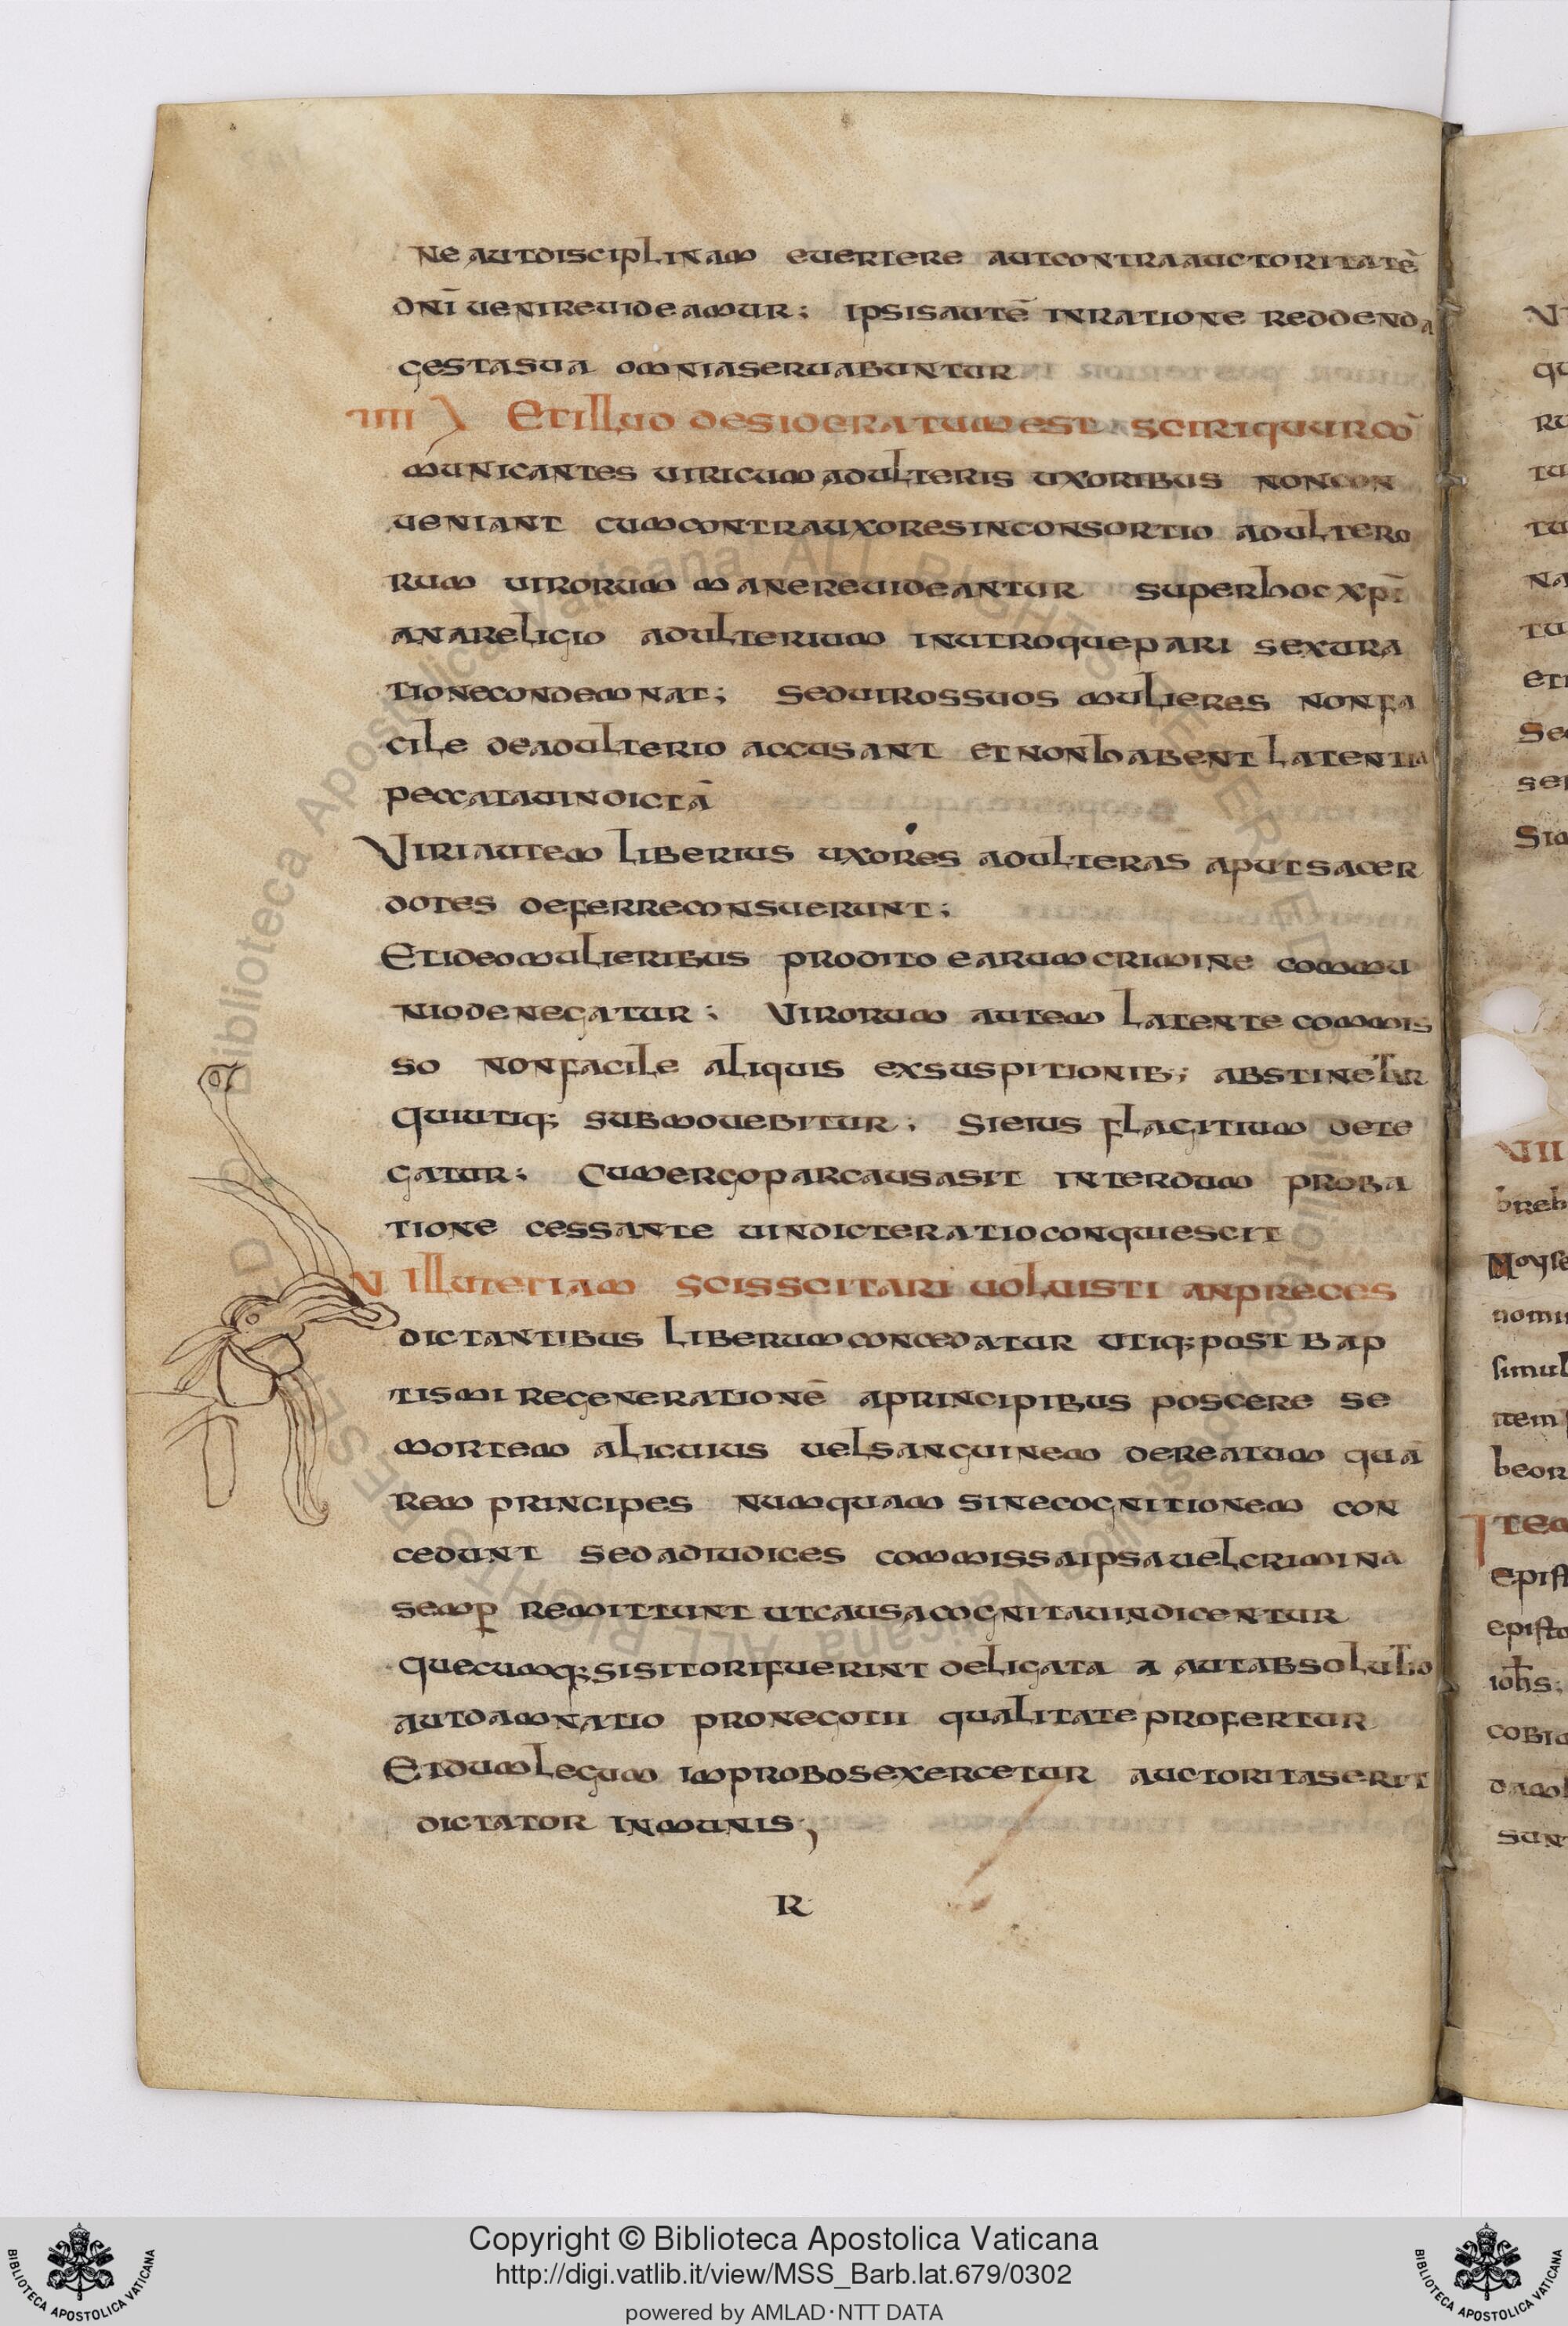 ne aut disciplinam euertere aut contra auctoritatē
dnī uenire uideamur; ipsis autē in ratione reddenda
gesta sua omnia seruabuntur
IIII Et illud desideratum est sciri qur cō
municantes uiri cum adulteris uxoribus non con
ueniant cum contra uxores in consortio adultero
rum uirorum manere uideantur super hoc xpī
ana religio adulterium in utroque pari sexu ra
tione condemnat; sed uiros suos mulieres non fa
cile de adulterio accusant et non habent latentia
peccata uindictā
Viri autem liberius uxores adulteras aput sacer
dotes deferre consuerunt;
Et ideo mulieribus prodito earum crimine commu
nio denegatur; Virorum autem latente commis
so non facile aliquis ex suspitionib; abstinetur
qui utiq; submouebitur; si eius flagitium dete
gatur; Cum ergo par causa sit interdum proba
tione cessante uindicte ratio conquiescit
V Illut etiam scisscitari uoluisti an preces
dictantibus liberum concedatur utiq; post bap
tismi regenerationē a principibus poscere se
mortem alicuius uel sanguinem de reatum quā
rem principes numquam sine cognitionem con
cedunt sed ad iudices commissa ipsa uel crimina
semp remittunt ut causa cognita uindicentur
quecumq; sisitori fuerint deligata a aut absolutio
aut damnatio pro negotii qualitate profertur
Et dum legum improbos exercetur auctoritas erit
dictator inmunis;
R
Copyright © Biblioteca Apostolica Vaticana
http://digi.vatlib.it/view/MSS_Barb.lat.679/0302
powered by AMLAD·NTT DATA